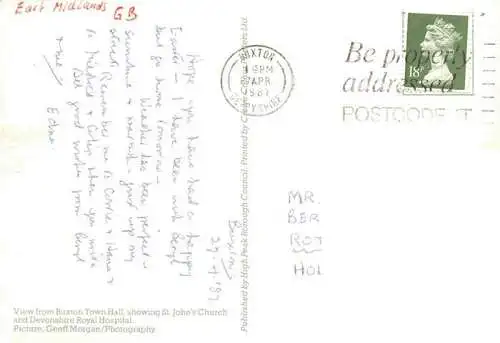 East Midlands GB
Buxton
27.4.'87
Hope you have had a happy
Easter — I have been with Beryl
but go home tomorrow —
Weather has been perfect —
sunshine & warmth — good using my
Remember me to & Hans &
to & when you write
Best good wishes from Beryl
& me. Edna.
View from Buxton Town Hall, showing St. John's Church
and Devonshire Royal Hospital.
Picture, Geoff Morgan/Photography.
Published by High Peak Borough Council. Printed by
BUXTON
PM
APR
1987
DERBYSHIRE
Be properly
addressed
POSTCODE IT
18P
MR.
BER
ROT
HOL